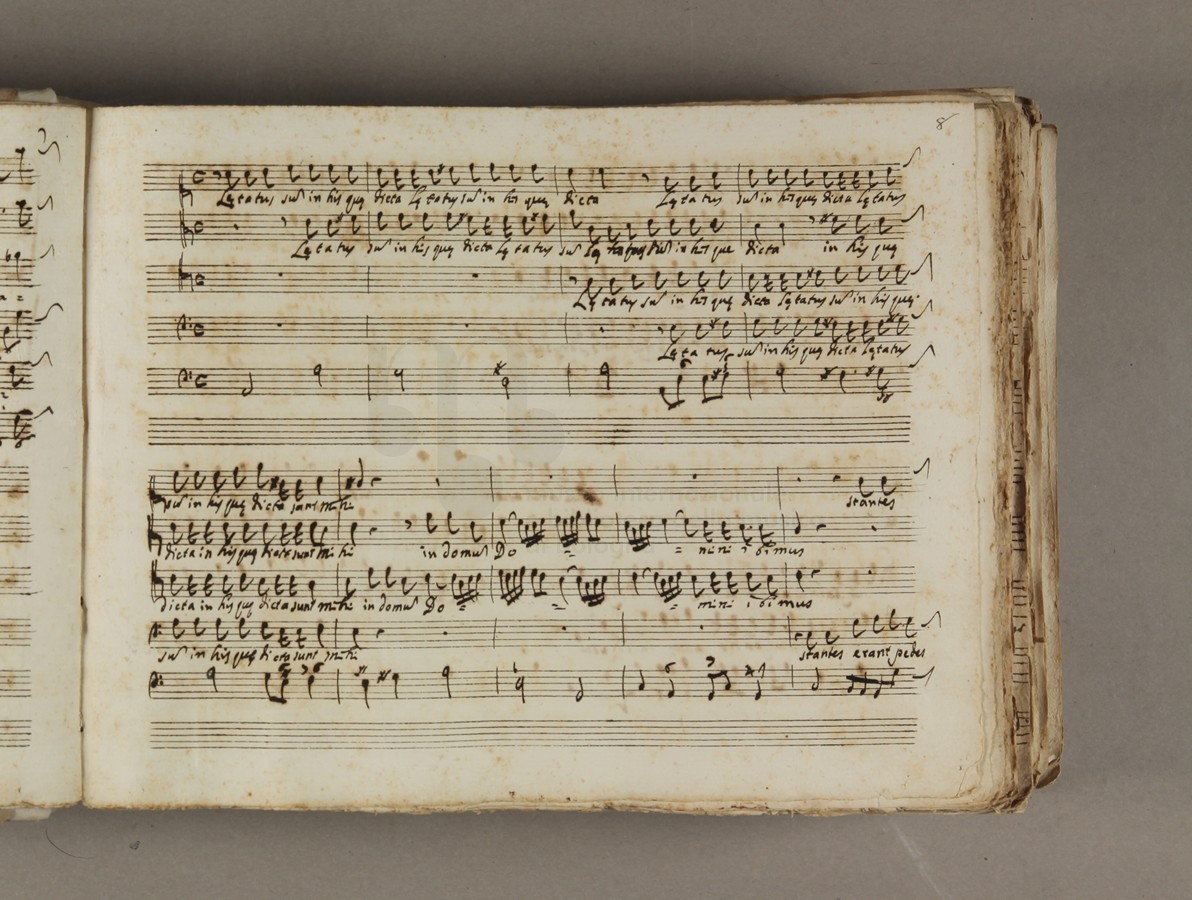 8
Lętatus sū in his quę dicta Lętatus sū in his quę dicta Lętatus sū in his quę dicta Lętatus
Lętatus sū in his quę dicta Lętatus sū in his que dicta in his quę
Lętatus sū in his quę dicta Lętatus sū in his quę
Lętatus sū in his quę dicta Lętatus
sū in his quę dicta sunt mihi stantes
dicta in his quę dicta sunt mihi in domū Do = = mini ibimus
dicta in his quę dicta sunt mihi in domū Do = = = mini ibimus
sū in his quę dicta sunt mihi stantes erant pedes